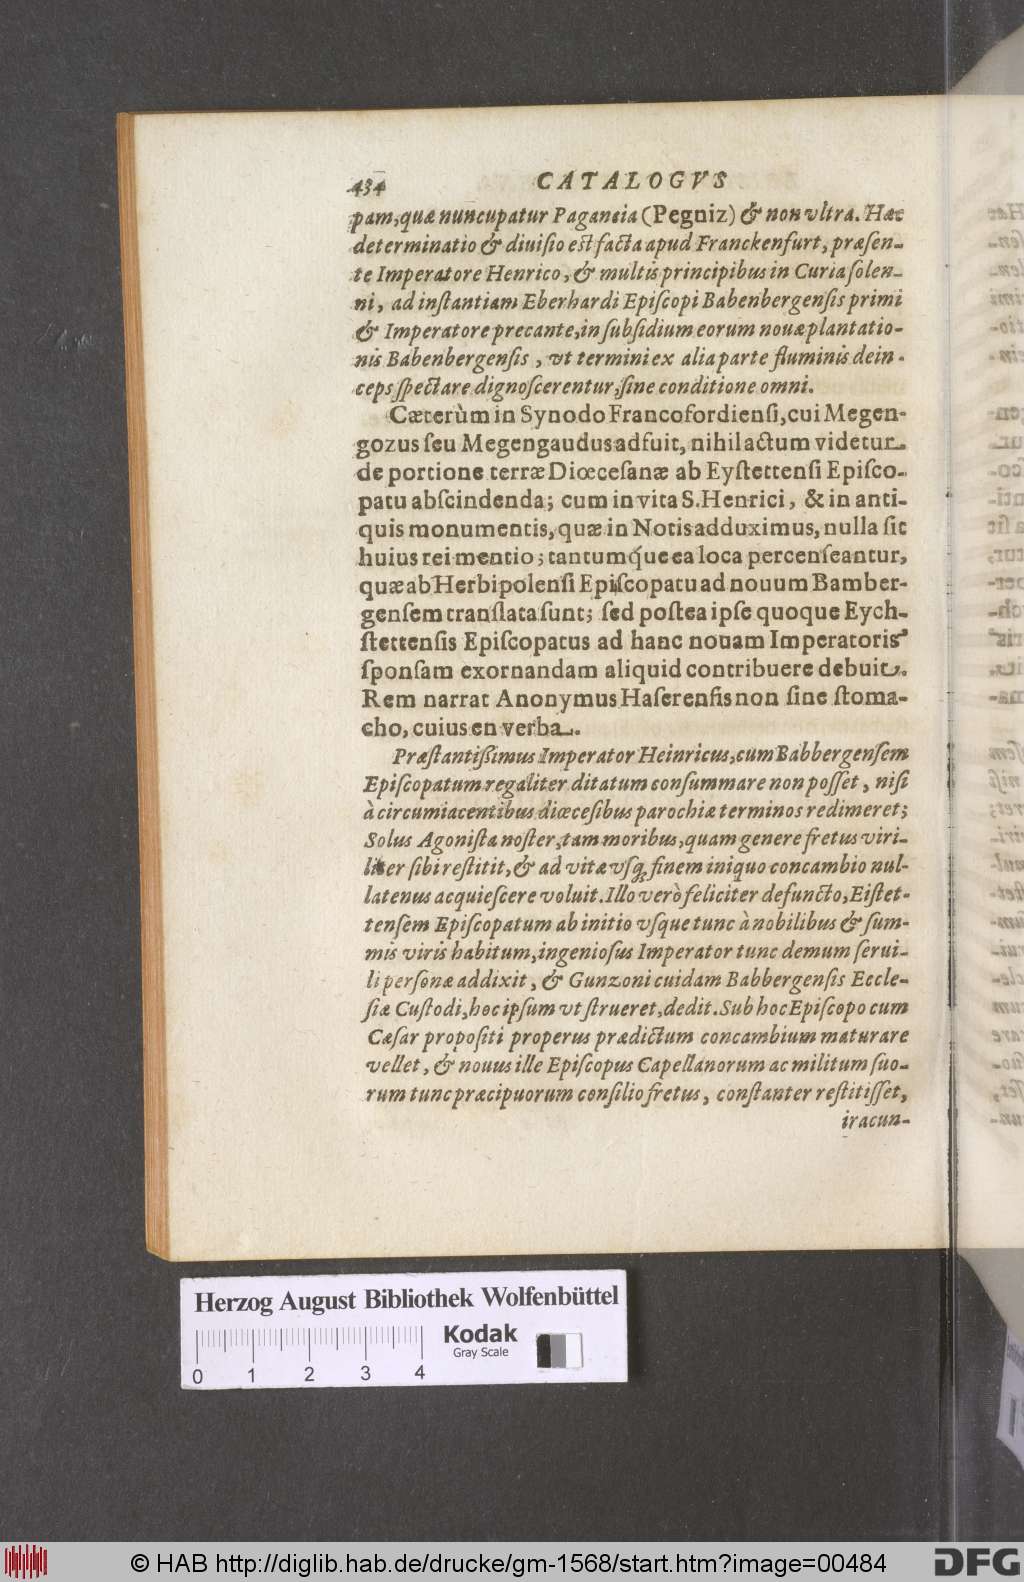 434 CATALOGVS
pam, quæ nuncupatur Paganeia (Pegniz) & non vltra. Hæc
determinatio & diuiſio eſt facta apud Franckenfurt, præſen-
te Imperatore Henrico, & multis principibus in Curia ſolen-
ni, ad inſtantiam Eberhardi Epiſcopi Babenbergenſis primi
& Imperatore precante, in ſubſidium eorum nouæ plantatio-
nis Babenbergenſis, vt termini ex alia parte fluminis dein-
ceps ſpectare dignoſcerentur, ſine conditione omni.
Cæterùm in Synodo Francofordienſi, cui Megen-
gozus ſeu Megengaudus adfuit, nihil actum videtur
de portione terræ Diœceſanæ ab Eyſtettenſi Epiſco-
patu abſcindenda; cum in vita S. Henrici, & in anti-
quis monumentis, quæ in Notis adduximus, nulla ſit
huius rei mentio; tantumq́ue ea loca percenſeantur,
quæ ab Herbipolenſi Epiſcopatu ad nouum Bamber-
genſem tranſlata ſunt; ſed poſtea ipſe quoque Eych-
ſtettenſis Epiſcopatus ad hanc nouam Imperatoris
ſponſam exornandam aliquid contribuere debuit.
Rem narrat Anonymus Haſerenſis non ſine ſtoma-
cho, cuius en verba.
Præſtantiſſimus Imperator Heinricus, cum Babbergenſem
Epiſcopatum regaliter ditatum conſummare non poſſet, niſi
à circumiacentibus diœceſibus parochiæ terminos redimeret;
Solus Agoniſta noſter, tam moribus, quam genere fretus viri-
liter ſibi reſtitit, & ad vitæ vſq; finem iniquo concambio nul-
latenus acquieſcere voluit. Illo verò feliciter defuncto, Eiſtet-
tenſem Epiſcopatum ab initio vſque tunc à nobilibus & ſum-
mis viris habitum, ingenioſus Imperator tunc demum ſerui-
li perſonæ addixit, & Gunzoni cuidam Babbergenſis Eccle-
ſiæ Cuſtodi, hoc ipſum vt ſtrueret, dedit. Sub hoc Epiſcopo cum
Cæſar propoſiti properus prædictum concambium maturare
vellet, & nouus ille Epiſcopus Capellanorum ac militum ſuo-
rum tunc præcipuorum conſilio fretus, conſtanter reſtitiſſet,
iracun-
Herzog August Bibliothek Wolfenbüttel
Kodak
Gray Scale
0 1 2 3 4
© HAB http://diglib.hab.de/drucke/gm-1568/start.htm?image=00484
DFG